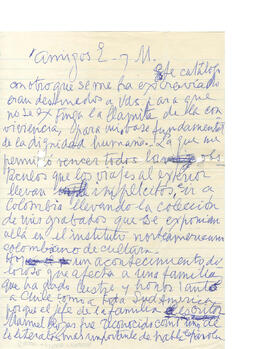 Amigos E. y M.
Este catálogo
con otro que se me ha extraviado
eran destinados a Uds. para que
no se extinga la llamita de la con
vivencia, para mi base fundamental
de la dignidad humana. La que me
permitió vencer todos los obs
táculos que los viajes al exterior
llevan implícitos, fui a
Colombia llevando la colección
de mis grabados que se exponían
allá en el instituto norteamericano
colombiano de cultura.
un acontecimiento do
loroso que afecta a una familia
que ha dado lustre y honor tanto
a Chile como a toda Sud América
porque el jefe de la familia escritor
Manuel Rojas fue reconocido como uno de
los literatos mas importante de habla española